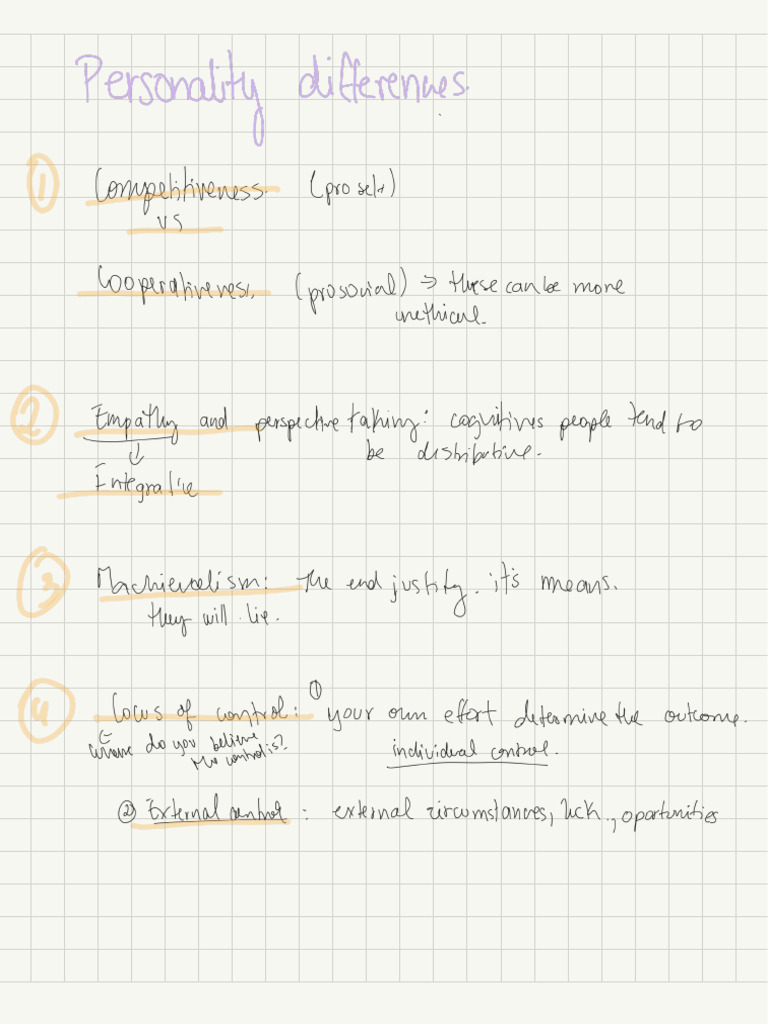 Personality differences.
① Competitiveness. (proself)
vs
Cooperativeness. (prosocial) ⇒ these can be more
unethical.
② Empathy and perspective taking: cognitives people tend to
be distributive.
↓
Integrative
③ Machievalism: the end justify. it's means.
they will lie.
④ Locus of control: ① your own effort determine the outcome.
where do you believe
the control is?
individual control.
② External control: external circumstances, luck., oportunities